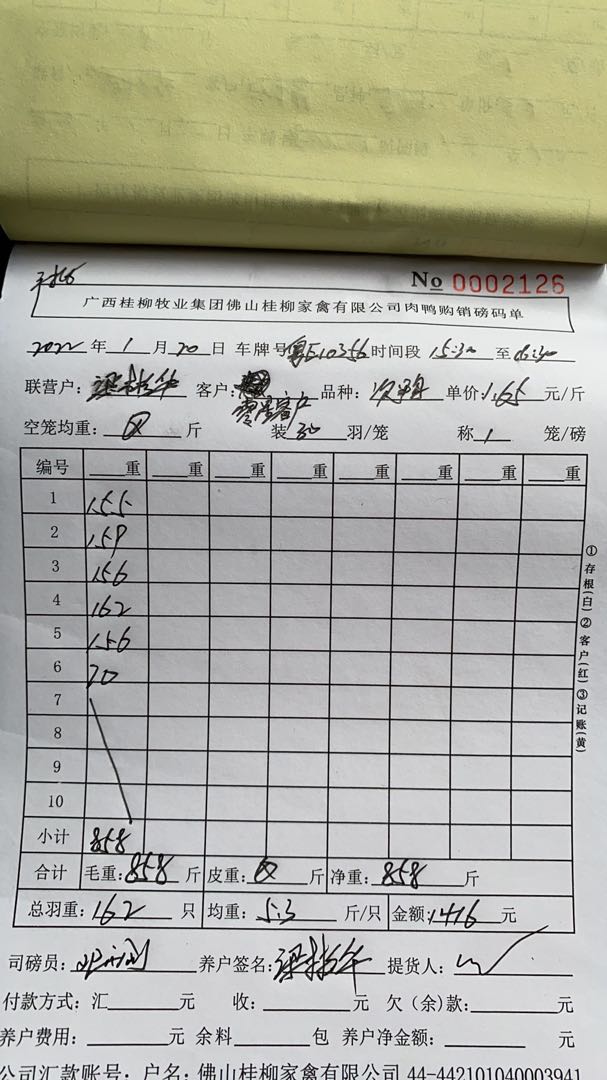 No 0002126
广西桂柳牧业集团佛山桂柳家禽有限公司肉鸭购销磅码单
2022 年 1 月 20 日 车牌号 粤E10356 时间段 15:30 至
联营户: 客户: 零售客户 品种: 单价: 1.65 元/斤
空笼均重: 斤 装 30 羽/笼 称 1 笼/磅
编号 重 重 重 重 重 重 重 重
1 155
2 159
3 156
4 162
5 156
6 70
7
8
9
10
小计 858
合计 毛重: 858 斤 皮重: 斤 净重: 858 斤
总羽重: 162 只 均重: 5.3 斤/只 金额: 1416 元
司磅员: 养户签名: 提货人:
付款方式: 汇 元 收: 元 欠(余)款: 元
养户费用: 元 余料 包 养户净金额: 元
公司汇款账号: 户名: 佛山桂柳家禽有限公司 44-442101040003941
①存根(白)②客户(红)③记账(黄)